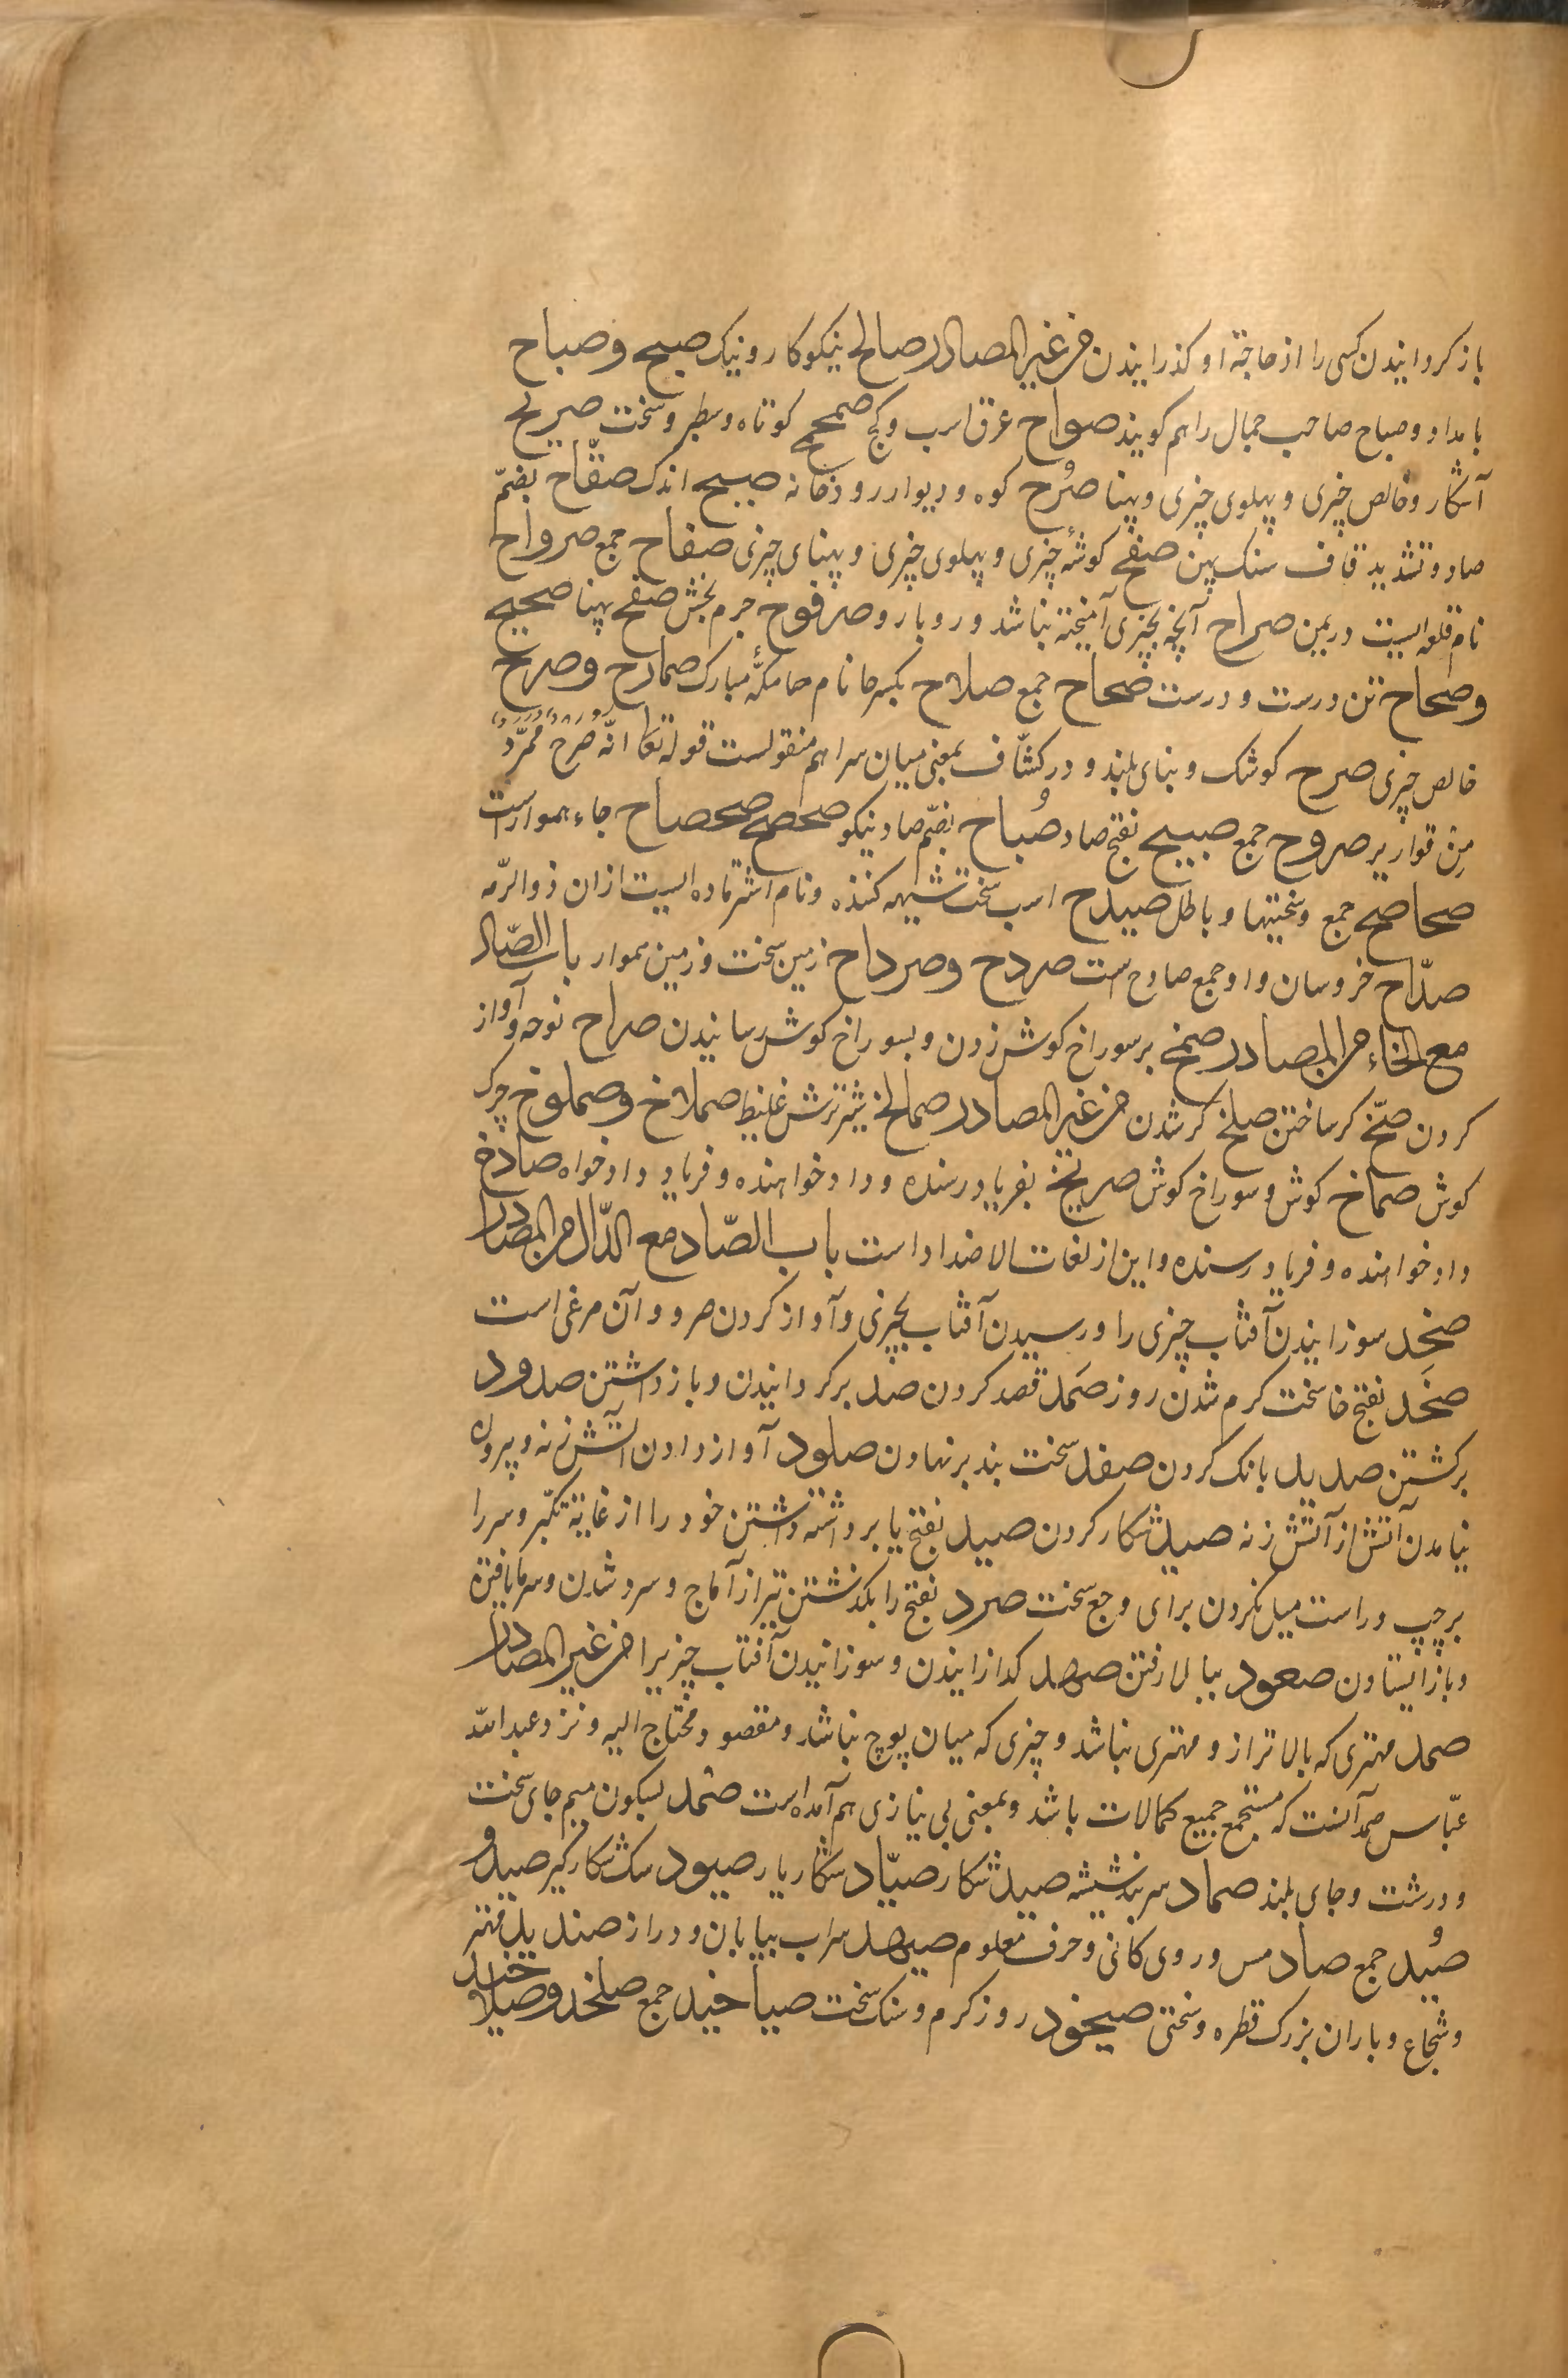 باز کردانیدن کسی را از حاجة او کذرانیدن من غیر المصادر صالح نیکوکار و نیک صبح و صباح
بامداد و صباح صاحب جمال را هم کویند صواح عرق اسب و کچ صمحمح کوتاه و سطبر و سخت صریح
آشکار و خالص چیزی و پهلوی چیزی و پهنا صُرح کوه و دیوار رودخانه صبیح اندک صقّاح بضمّ
صاد و تشدید قاف سنک پهن صفح کوشهٔ چیزی و پهلوی چیزی و پهنای چیزی صفاح جمع صرواح
نام قلعه ایست در یمن صراح آنچه بچیزی آمیخته نباشد و روبارو صرفوح جرم بخش صفح پهنا صحیح
وصحاح تن درست و درست صحاح جمع صلاح بکسر حا نام حا مکّهٔ مبارک صمارح و صرح
خالص چیزی صرح کوشک و بنای بلند و در کشّاف بمعنی میان سرا هم منقولست قوله تعا انّه صرحٌ ممرّدٌ
مِن قواریر صروح جمع صبیح بفتح صاد و صُباح بضمّ صاد نیکو صحصح صحصاح جاء هموارست
صحاصح جمع و سختیها و باطل صیدح اسب سخت شیهه کننده و نام اشتر ماده ایست ازان ذوالرّمه
صدّاح خروسان و او جمع صادح است صردح و صرداح زمین سخت و زمین هموار باب الصّاد
مع الخاء من المصادر صمخ بر سوراخ کوش زدن و بسوراخ کوش رسانیدن صراح نوحه و آواز
کردن صخّ کر ساختن صلخ کر شدن من غیر المصادر صمالخ شیر ترش غلیظ صملاخ و صملوخ چرک
کوش صماخ کوش و سوراخ کوش صریخ بفریاد رسنده و داد خواهنده و فریاد و داد خواه صادخ
داد خواهنده و فریاد رسنده و این از لغات الاضداد است باب الصّاد مع الدّال من المصادر
صخد سوزانیدن آفتاب چیزی را و رسیدن آفتاب بچیزی و آواز کردن صرد و آن مرغی است
صخَد بفتح خا سخت کرم شدن روز صَمد قصد کردن صد بر کردانیدن و باز داشتن صدود
برکشتن صدید بانک کردن صفد سخت بند بر نهادن صلود آواز دادن آتش زنه و بیرون
نیامدن آتش از آتش زنه صید شکار کردن صید بفتح یا برداشته داشتن خود را از غایة تکبّر و سر را
بر چپ و راست میل نکردن برای وجع سخت صرد بفتح را بکذشتن تیر از آماج و سرد شدن و سرما یافتن
و باز ایستادن صعود ببالا رفتن صهد کدازانیدن و سوزانیدن آفتاب چیزیرا من غیر المصادر
صمد مهتری که بالاتر از و مهتری نباشد و چیزی که میان پوچ نباشد و مقصود و محتاج الیه و نزد عبد الله
عبّاس صمد آنست که مستجمع جمیع کمالات باشد و بمعنی بی نیازی هم آمده است صمد بسکون میم جای سخت
و درشت و جای بلند صماد سر بند شیشه صید شکار صیّاد شکاریار صیود سک شکار کیر صید و
صُید جمع صاد مس و روی کانی و حرف معلوم صیهد سراب بیابان و دراز صندید مهتر
و شجاع و باران بزرک قطره و سختی صیخود روز کرم و سنک سخت صیاخید جمع صلخد و صیلاخد